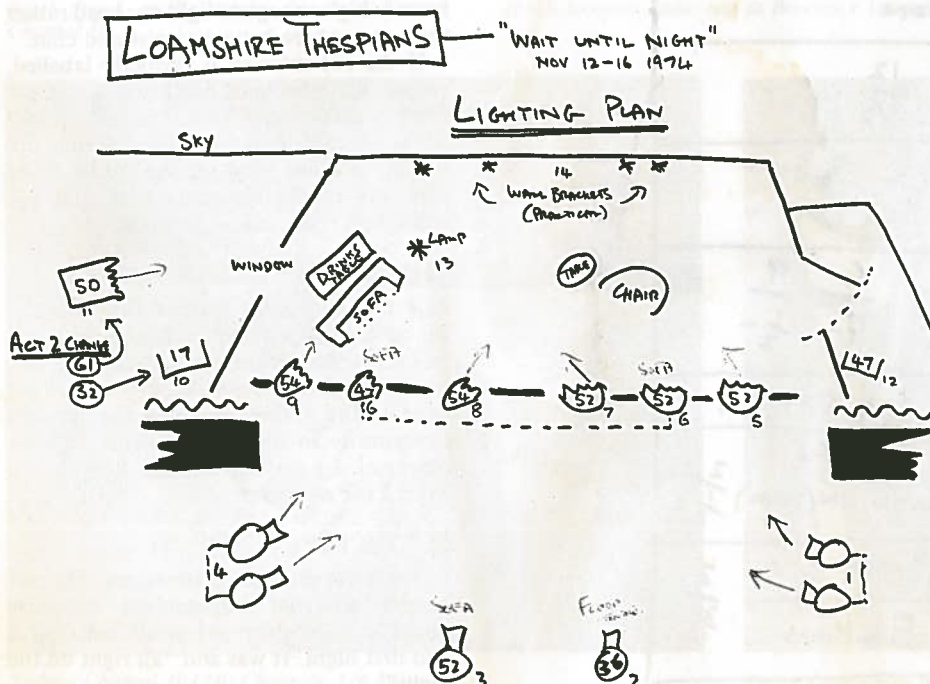 LOAMSHIRE THESPIANS
"WAIT UNTIL NIGHT"
NOV 12-16 1974
LIGHTING PLAN
SKY
14
WALL BRACKETS
(PRACTICAL)
WINDOW
DRINKS
TABLE
SOFA
LAMP
13
TABLE
CHAIR
50
11
ACT 2 CHANGE
61
32
17
10
47
12
54
9
SOFA
16
54
8
52
7
SOFA
52
6
52
5
4
1
SOFA
52
3
FLOOR
36
2